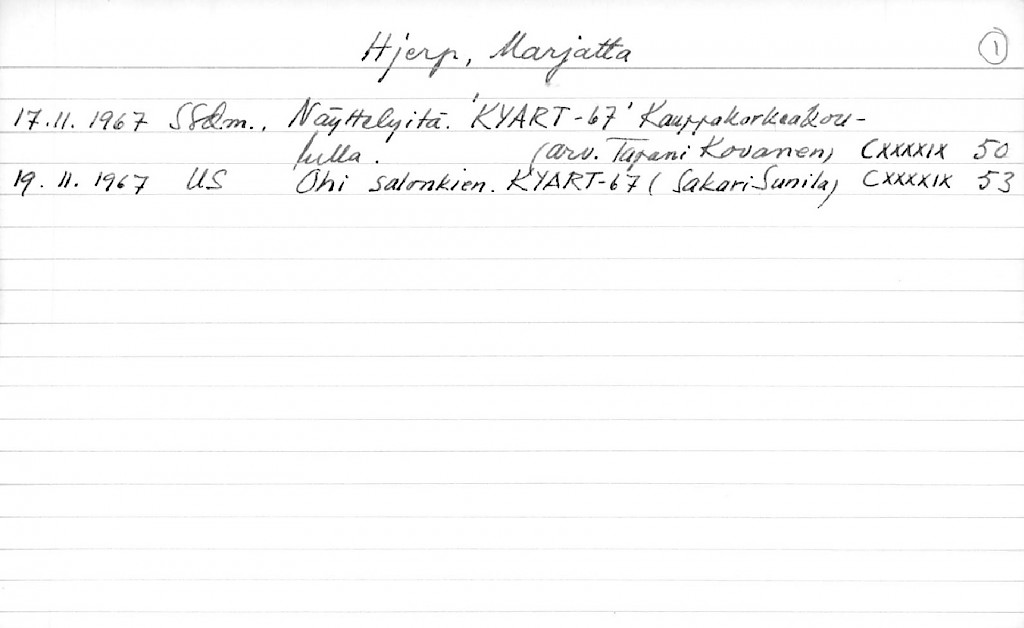 Hjerp, Marjatta 1
17.11.1967 SSdm., Näyttelyitä. 'KYART-67' Kauppakorkeakou-
lulla. (arv. Tapani Kovanen) CXXXXIX 50
19.11.1967 US Ohi salonkien. KYART-67 (Sakari Sunila) CXXXXIX 53